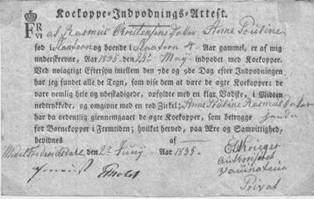 Koekoppe-Indpodnings-Attest.
FR
VI
at Rasmus Christensens Datter Anne
født og boende 4 Aar gammel, er af mig
underskrevne, Aar 1835 den May indpodet med Koekopper.
Ved nøiagtig Eftersyn imellem den 7de og 9de Dag efter Indpodningen
har jeg fundet alle de Tegn, som vise dem at være de ægte Koekopper: de
vare nemlig hele og ubeskadigede, opfyldte med en klar Vædske, i Midten
nedtrykkede, og omgivne med en rød Cirkel; Anne Rasmus Datter
har da ordentlig giennemgaaet de ægte Koekopper, som betrygge hende
for Børnekopper i Fremtiden; hvilket herved, paa Ære og Samvittighed,
bevidnes af
den 2 Juny 1835.
Privat